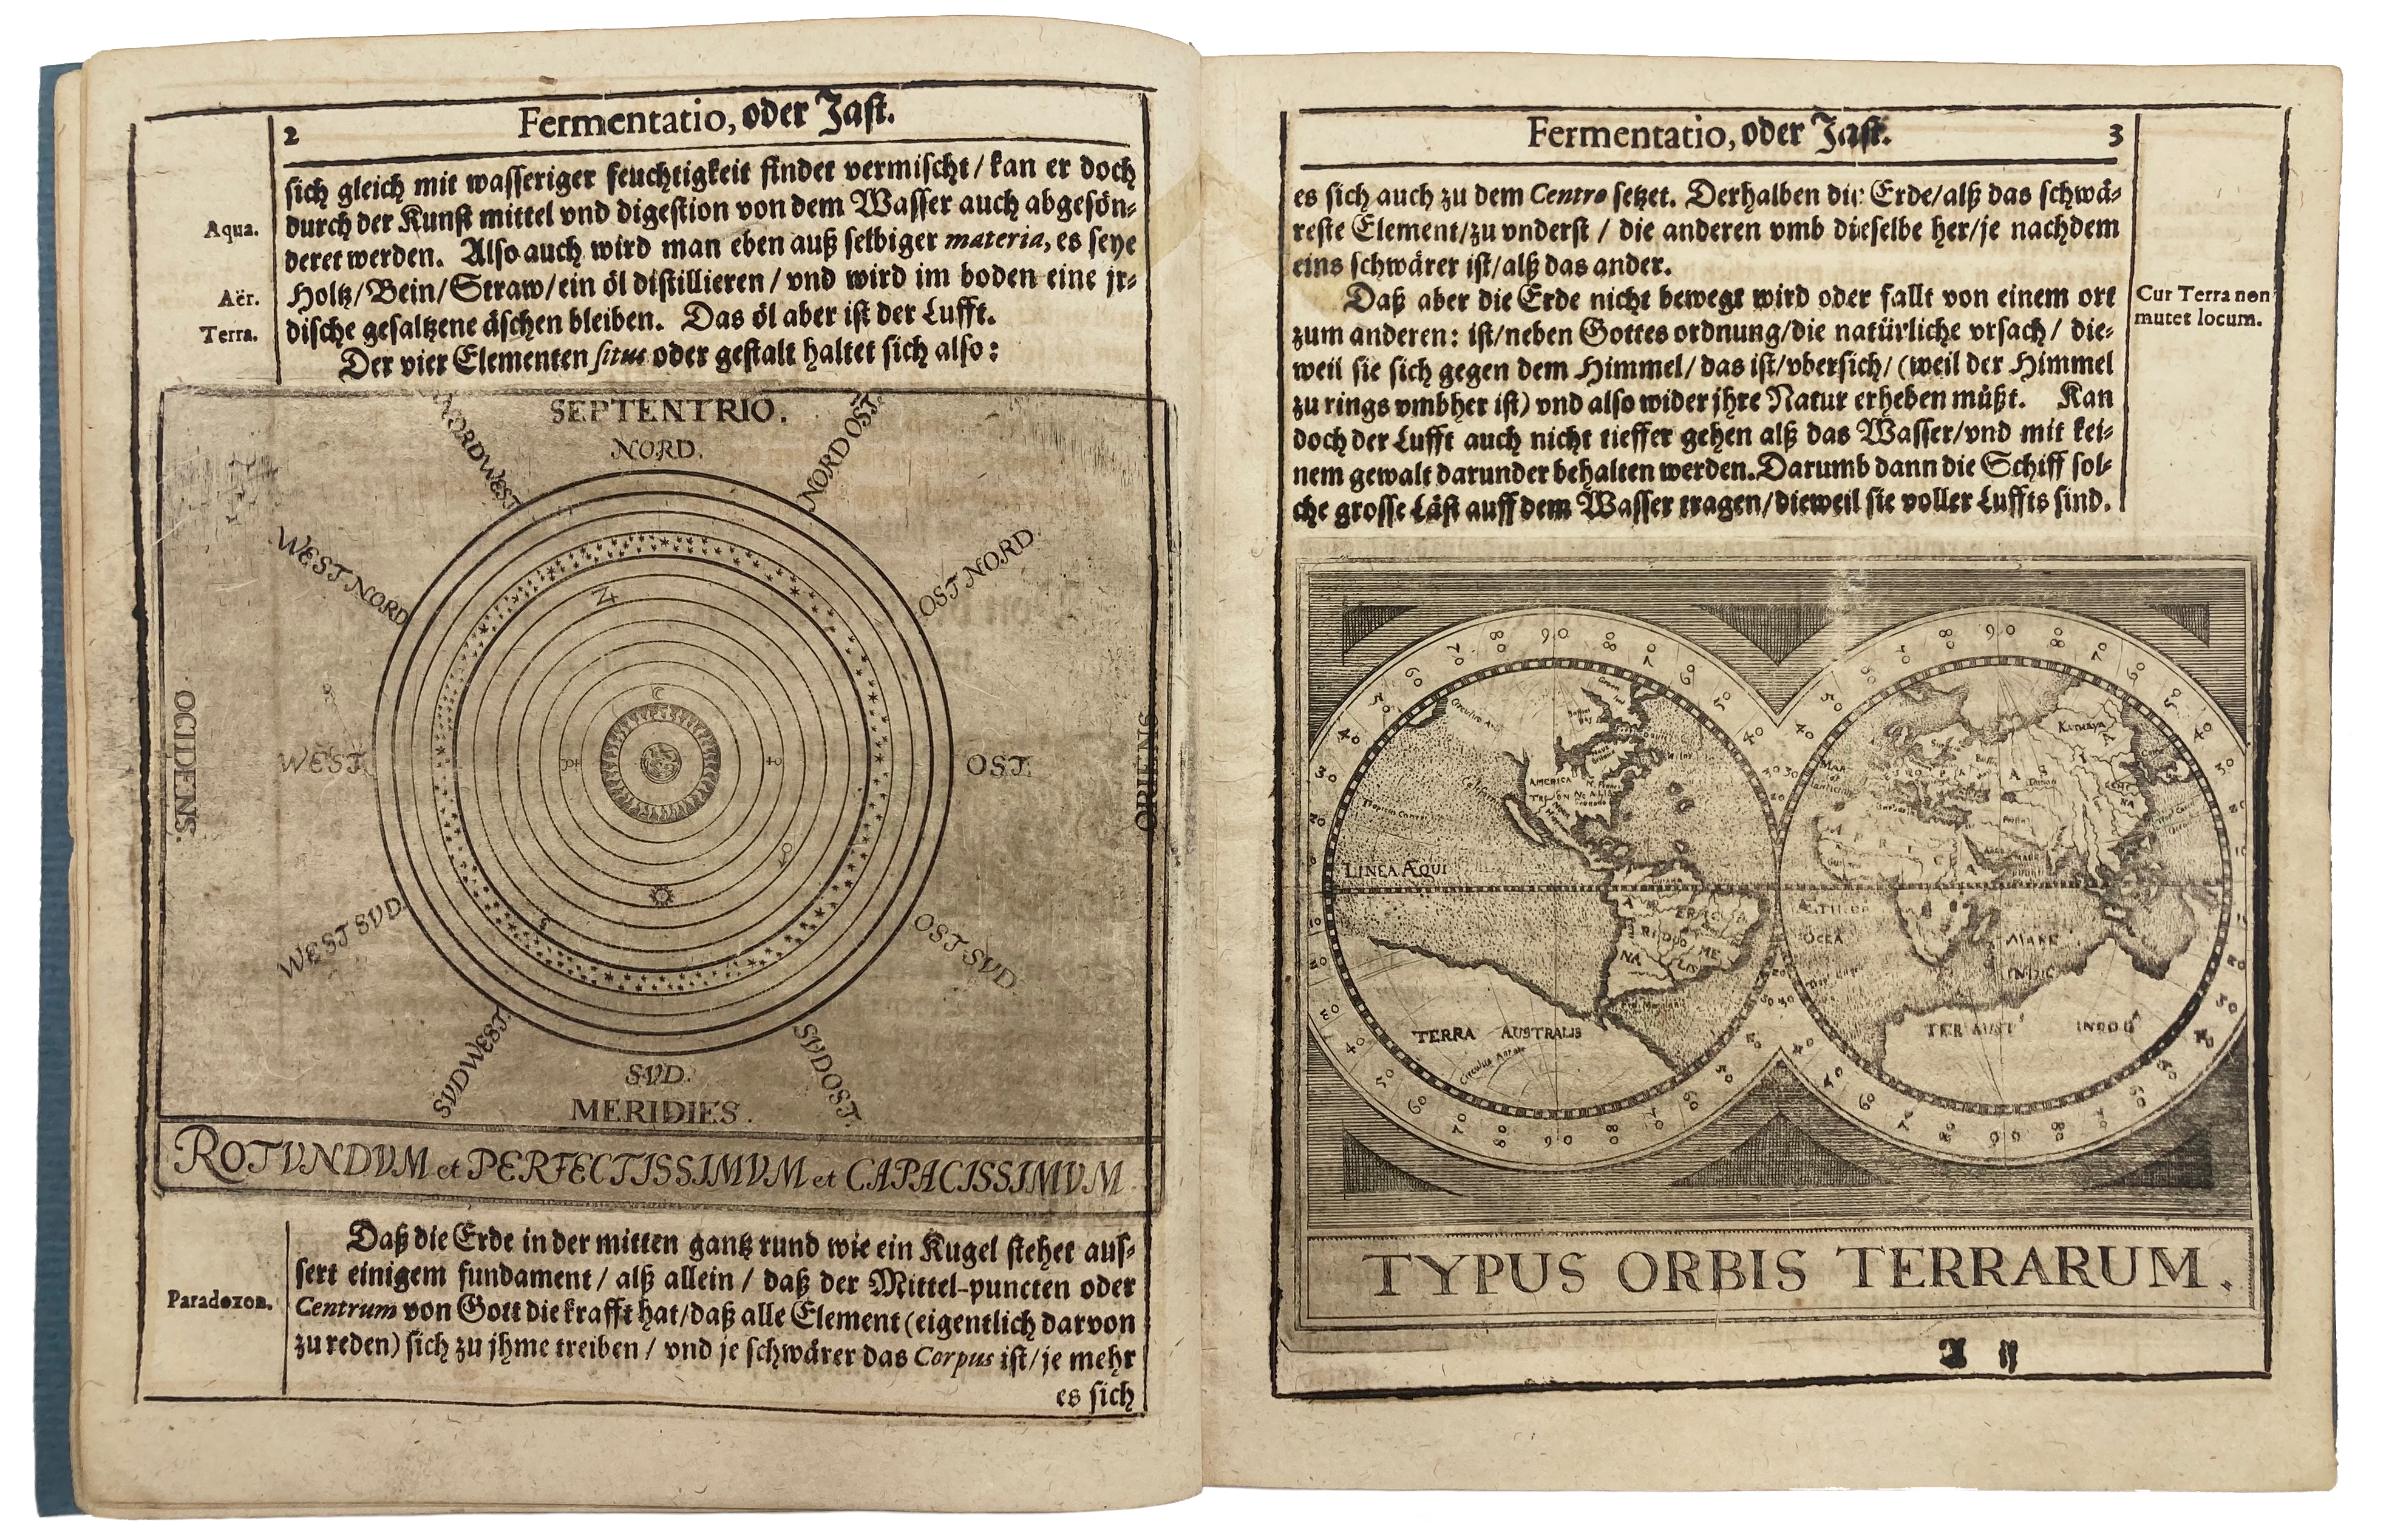 2 Fermentatio, oder Jast.
sich gleich mit wasseriger feuchtigkeit findet vermischt / kan er doch
durch der Kunst mittel vnd digestion von dem Wasser auch abgesön-
Aqua.
deret werden. Also auch wird man eben auß selbiger materia, es seye
Holtz / Bein / Straw / ein öl distillieren / vnd wird im boden eine jr-
Aër.
dische gesaltzene äschen bleiben. Das öl aber ist der Lufft.
Terra.
Der vier Elementen situs oder gestalt haltet sich also:
SEPTENTRIO.
NORD.
NORDWEST
NORD OST
WEST NORD
OST NORD
OCIDENS.
WEST.
OST.
ORIENS
WEST SVD
OST SVD
SVDWEST.
SVDOST.
SVD.
MERIDIES.
ROTVNDVM et PERFECTISSIMVM et CAPACISSIMVM
Daß die Erde in der mitten gantz rund wie ein Kugel stehet aus-
sert einigem fundament / alß allein / daß der Mittel-puncten oder
Paradoxon.
Centrum von Gott die krafft hat / daß alle Element (eigentlich darvon
zu reden) sich zu jhme treiben / vnd je schwärer das Corpus ist / je mehr
es sich
Fermentatio, oder Jast. 3
es sich auch zu dem Centro setzet. Derhalben die Erde / alß das schwä-
reste Element / zu vnderst / die anderen vmb dieselbe her / je nachdem
eins schwärer ist / alß das ander.
Daß aber die Erde nicht bewegt wird oder fallt von einem ort
Cur Terra non
mutet locum.
zum anderen: ist / neben Gottes ordnung / die natürliche vrsach / die-
weil sie sich gegen dem Himmel / das ist / vbersich / (weil der Himmel
zu rings vmbher ist) vnd also wider jhre Natur erheben müßt. Kan
doch der Lufft auch nicht tieffer gehen alß das Wasser / vnd mit kei-
nem gewalt darunder behalten werden. Darumb dann die Schiff sol-
che grosse Läst auff dem Wasser tragen / dieweil sie voller Luffts sind.
AMERICA
California
LINEA ÆQUI
TERRA AUSTRALIS
MARE
TYPUS ORBIS TERRARUM.
A ij